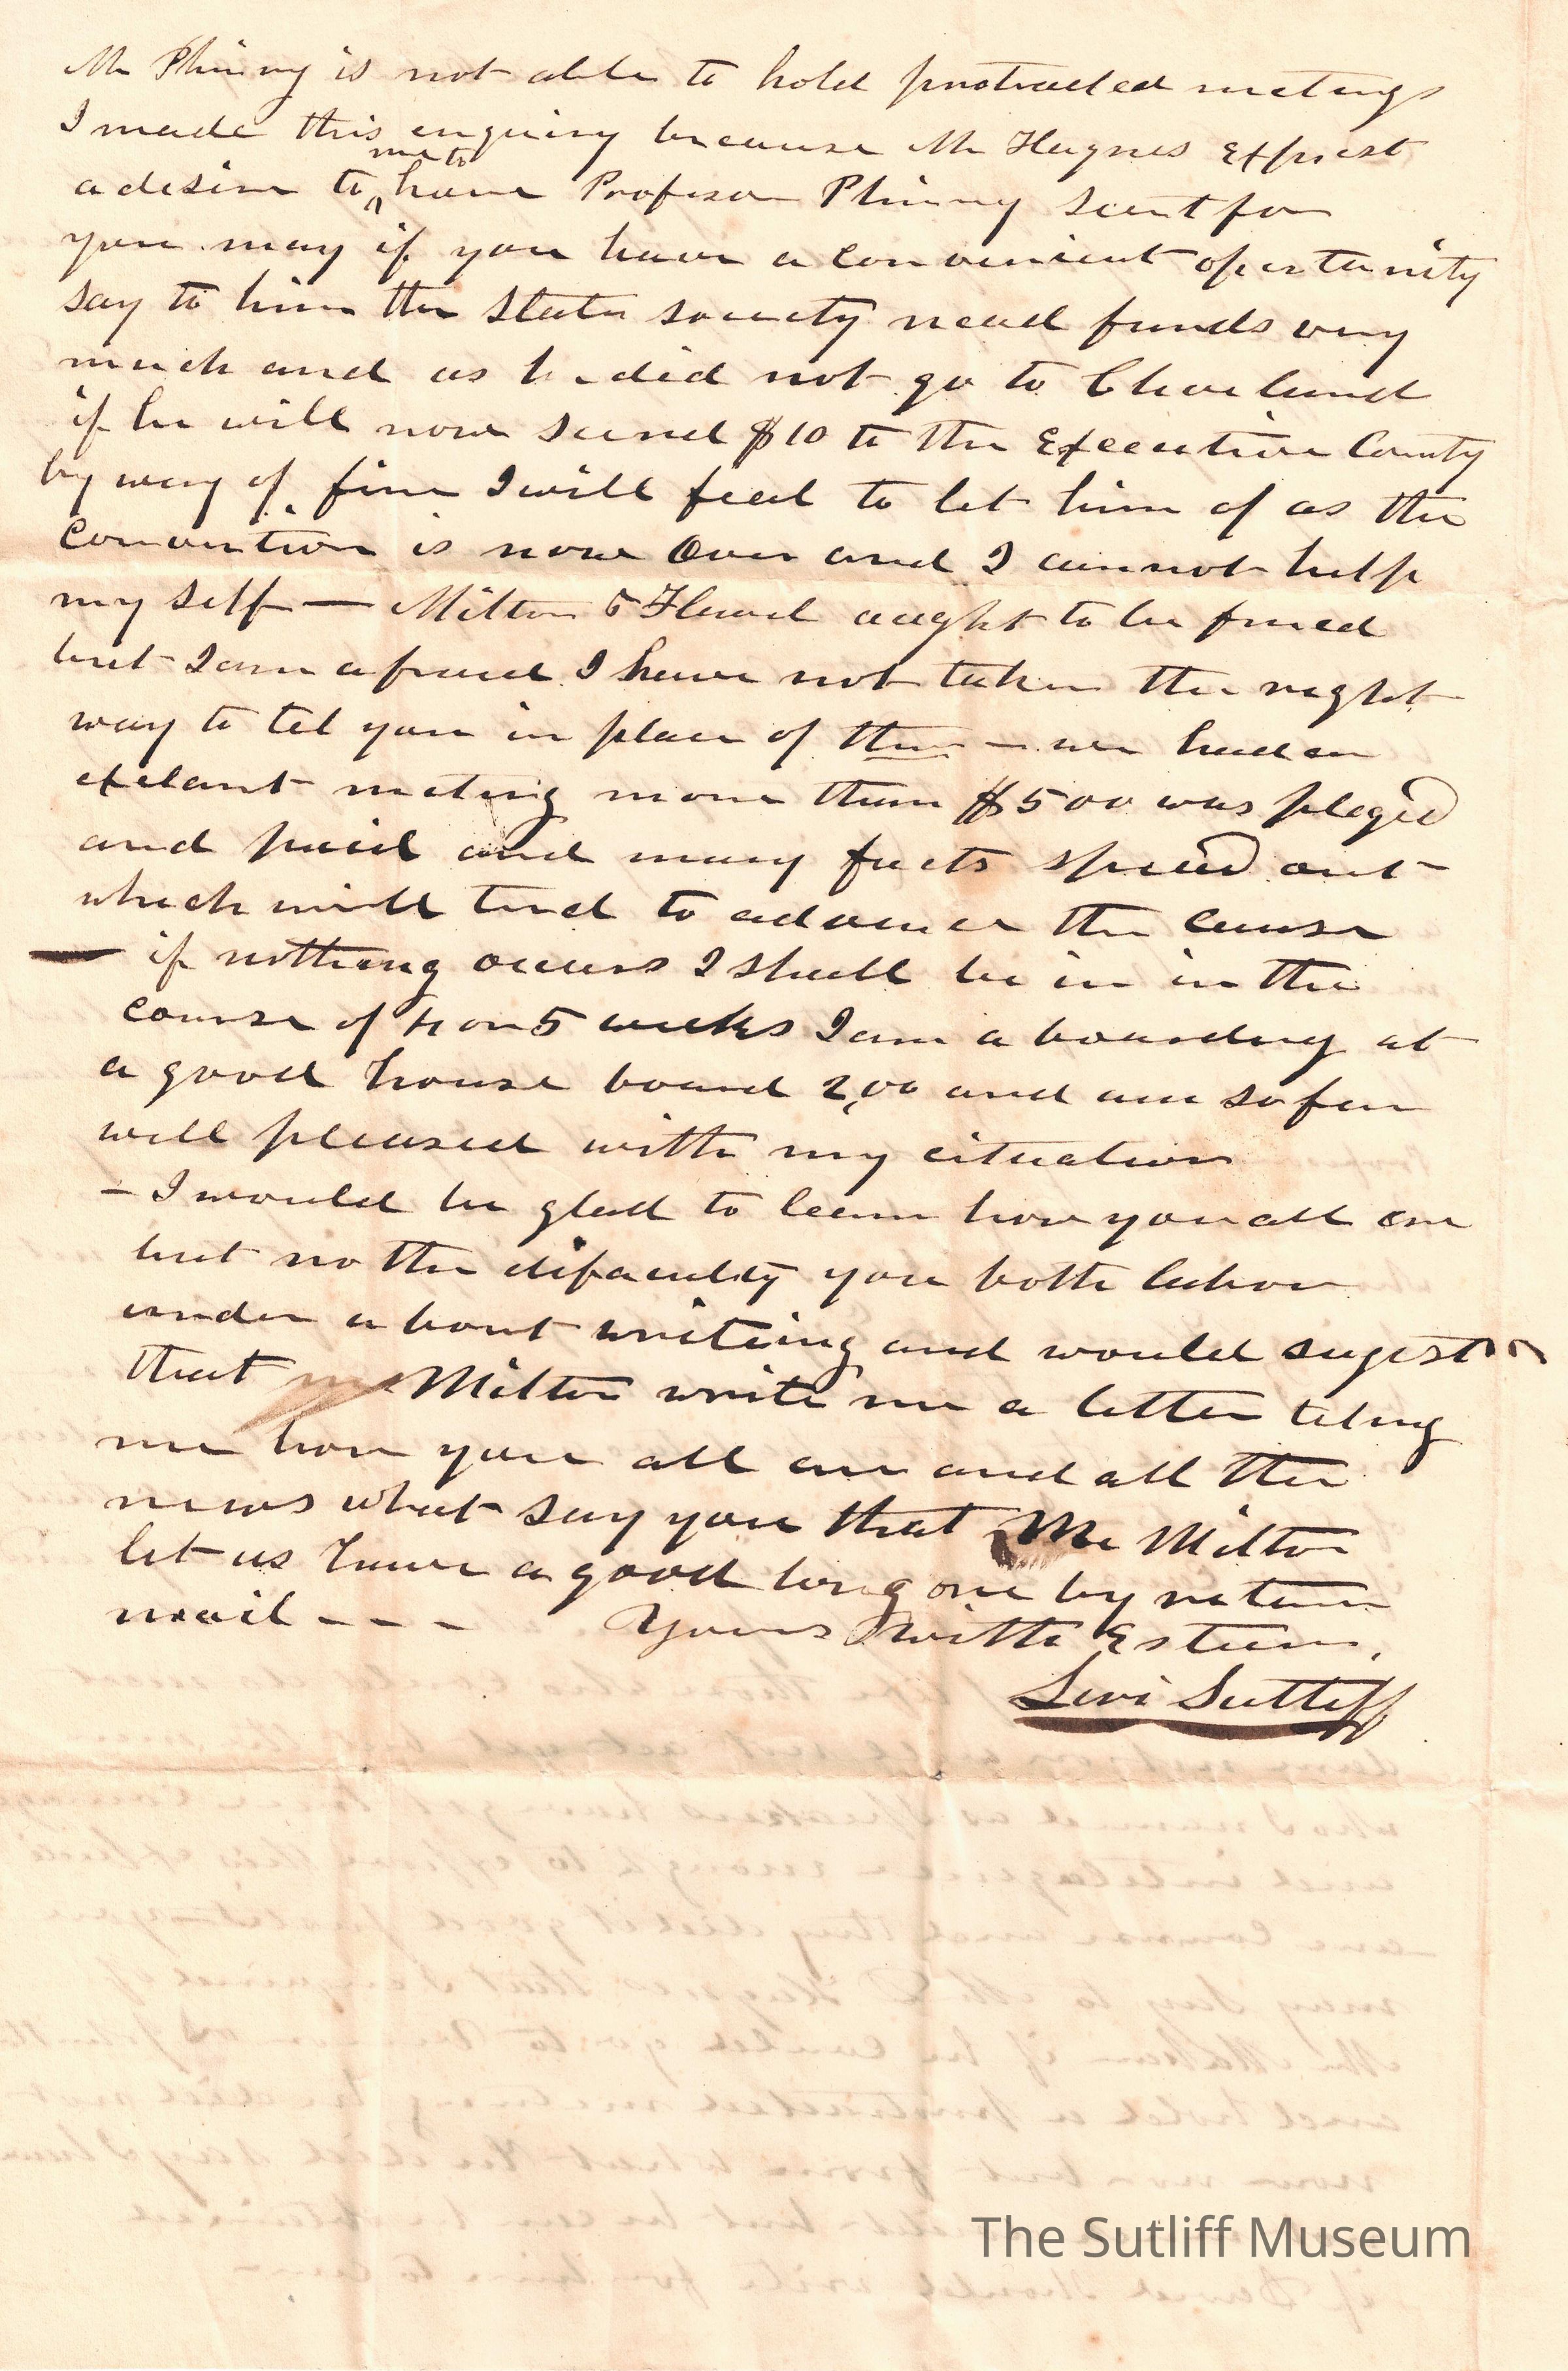 Mr Phinny is not able to hold protracted metings
I made this enquiry because Mr Haynes exprest
a desire to me to have Professor Phinny scent for
you may if you have a convenient opertunity
say to him the State society nead funds very
much and as he did not go to Cleaveland
if he will now scend $10 to the Executive
by way of fine I will feel to let him of as the
convention is now over and I cannot help
my self — Milton & aught to be fined
but I am afraid I have not taken the right
way to tel you in place of them — we had an
exelant meting more than $500 was pleged
and paid and many facts spread out
which will tend to advance the cause
— if nothing occurs I shall be in in the
course of 4 or 5 weeks I am a boarding at
a good house board 2,00 and am so far
well pleased with my cituation
– I would be glad to learn how you all are
but no the difaculty you both labor
under a bout writeing and would sugest
that Milton write me a letter teling
me how you all are and all the
news what say you that Mr Milton
let us have a good long one by return
mail – – – Yours with Esteem,
Levi Sutliff
The Sutliff Museum